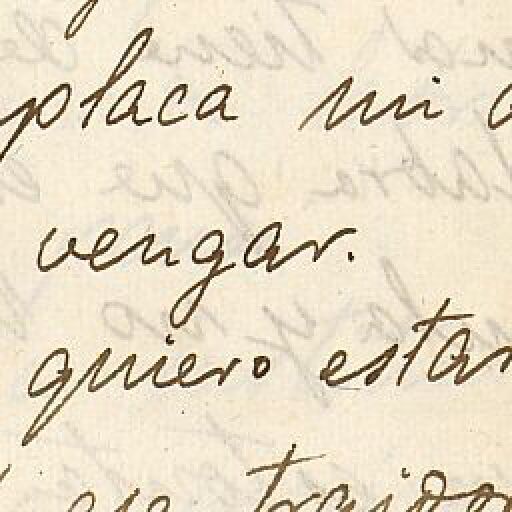 placa mi
vengar.
quiero estar
ese traidor